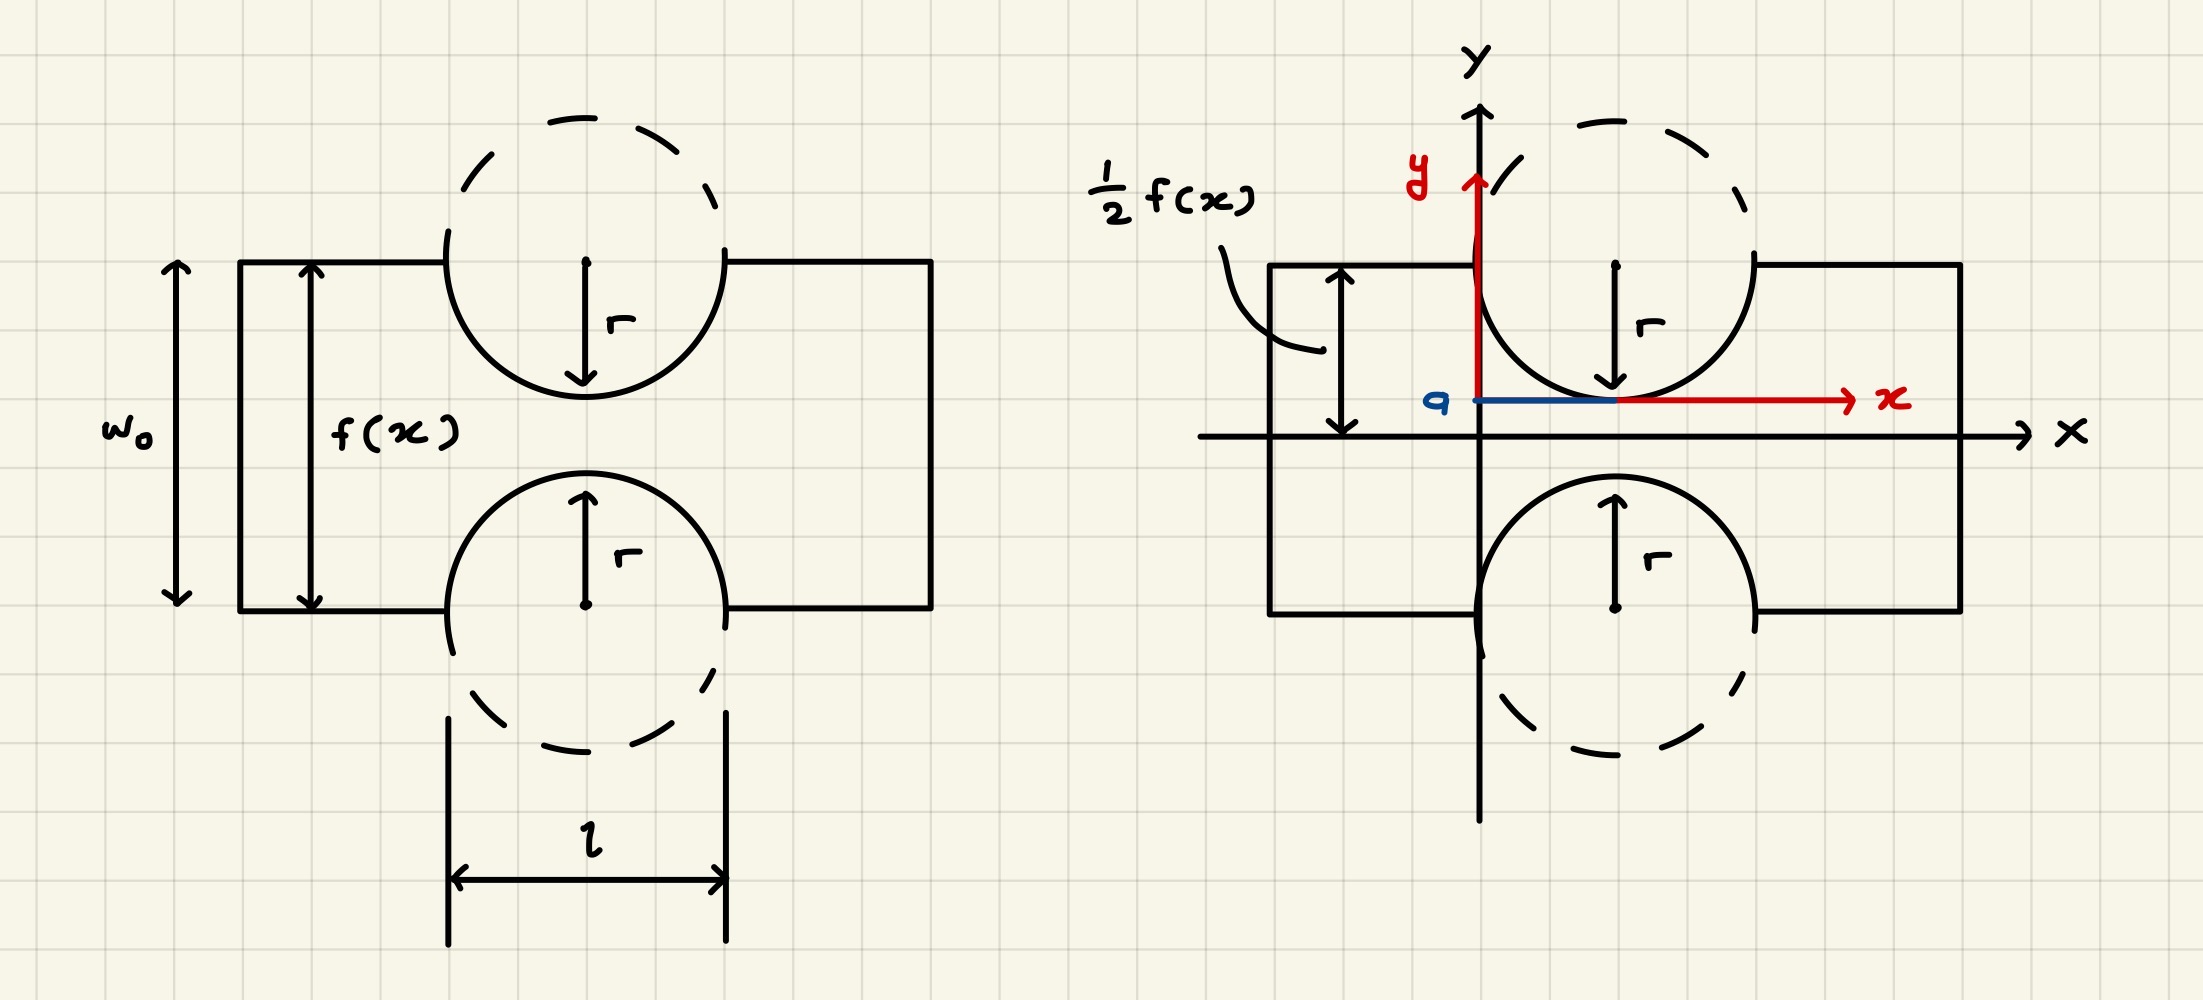 w₀
f(x)
r
r
l
Y
y
½ f(x)
r
a
x
X
r